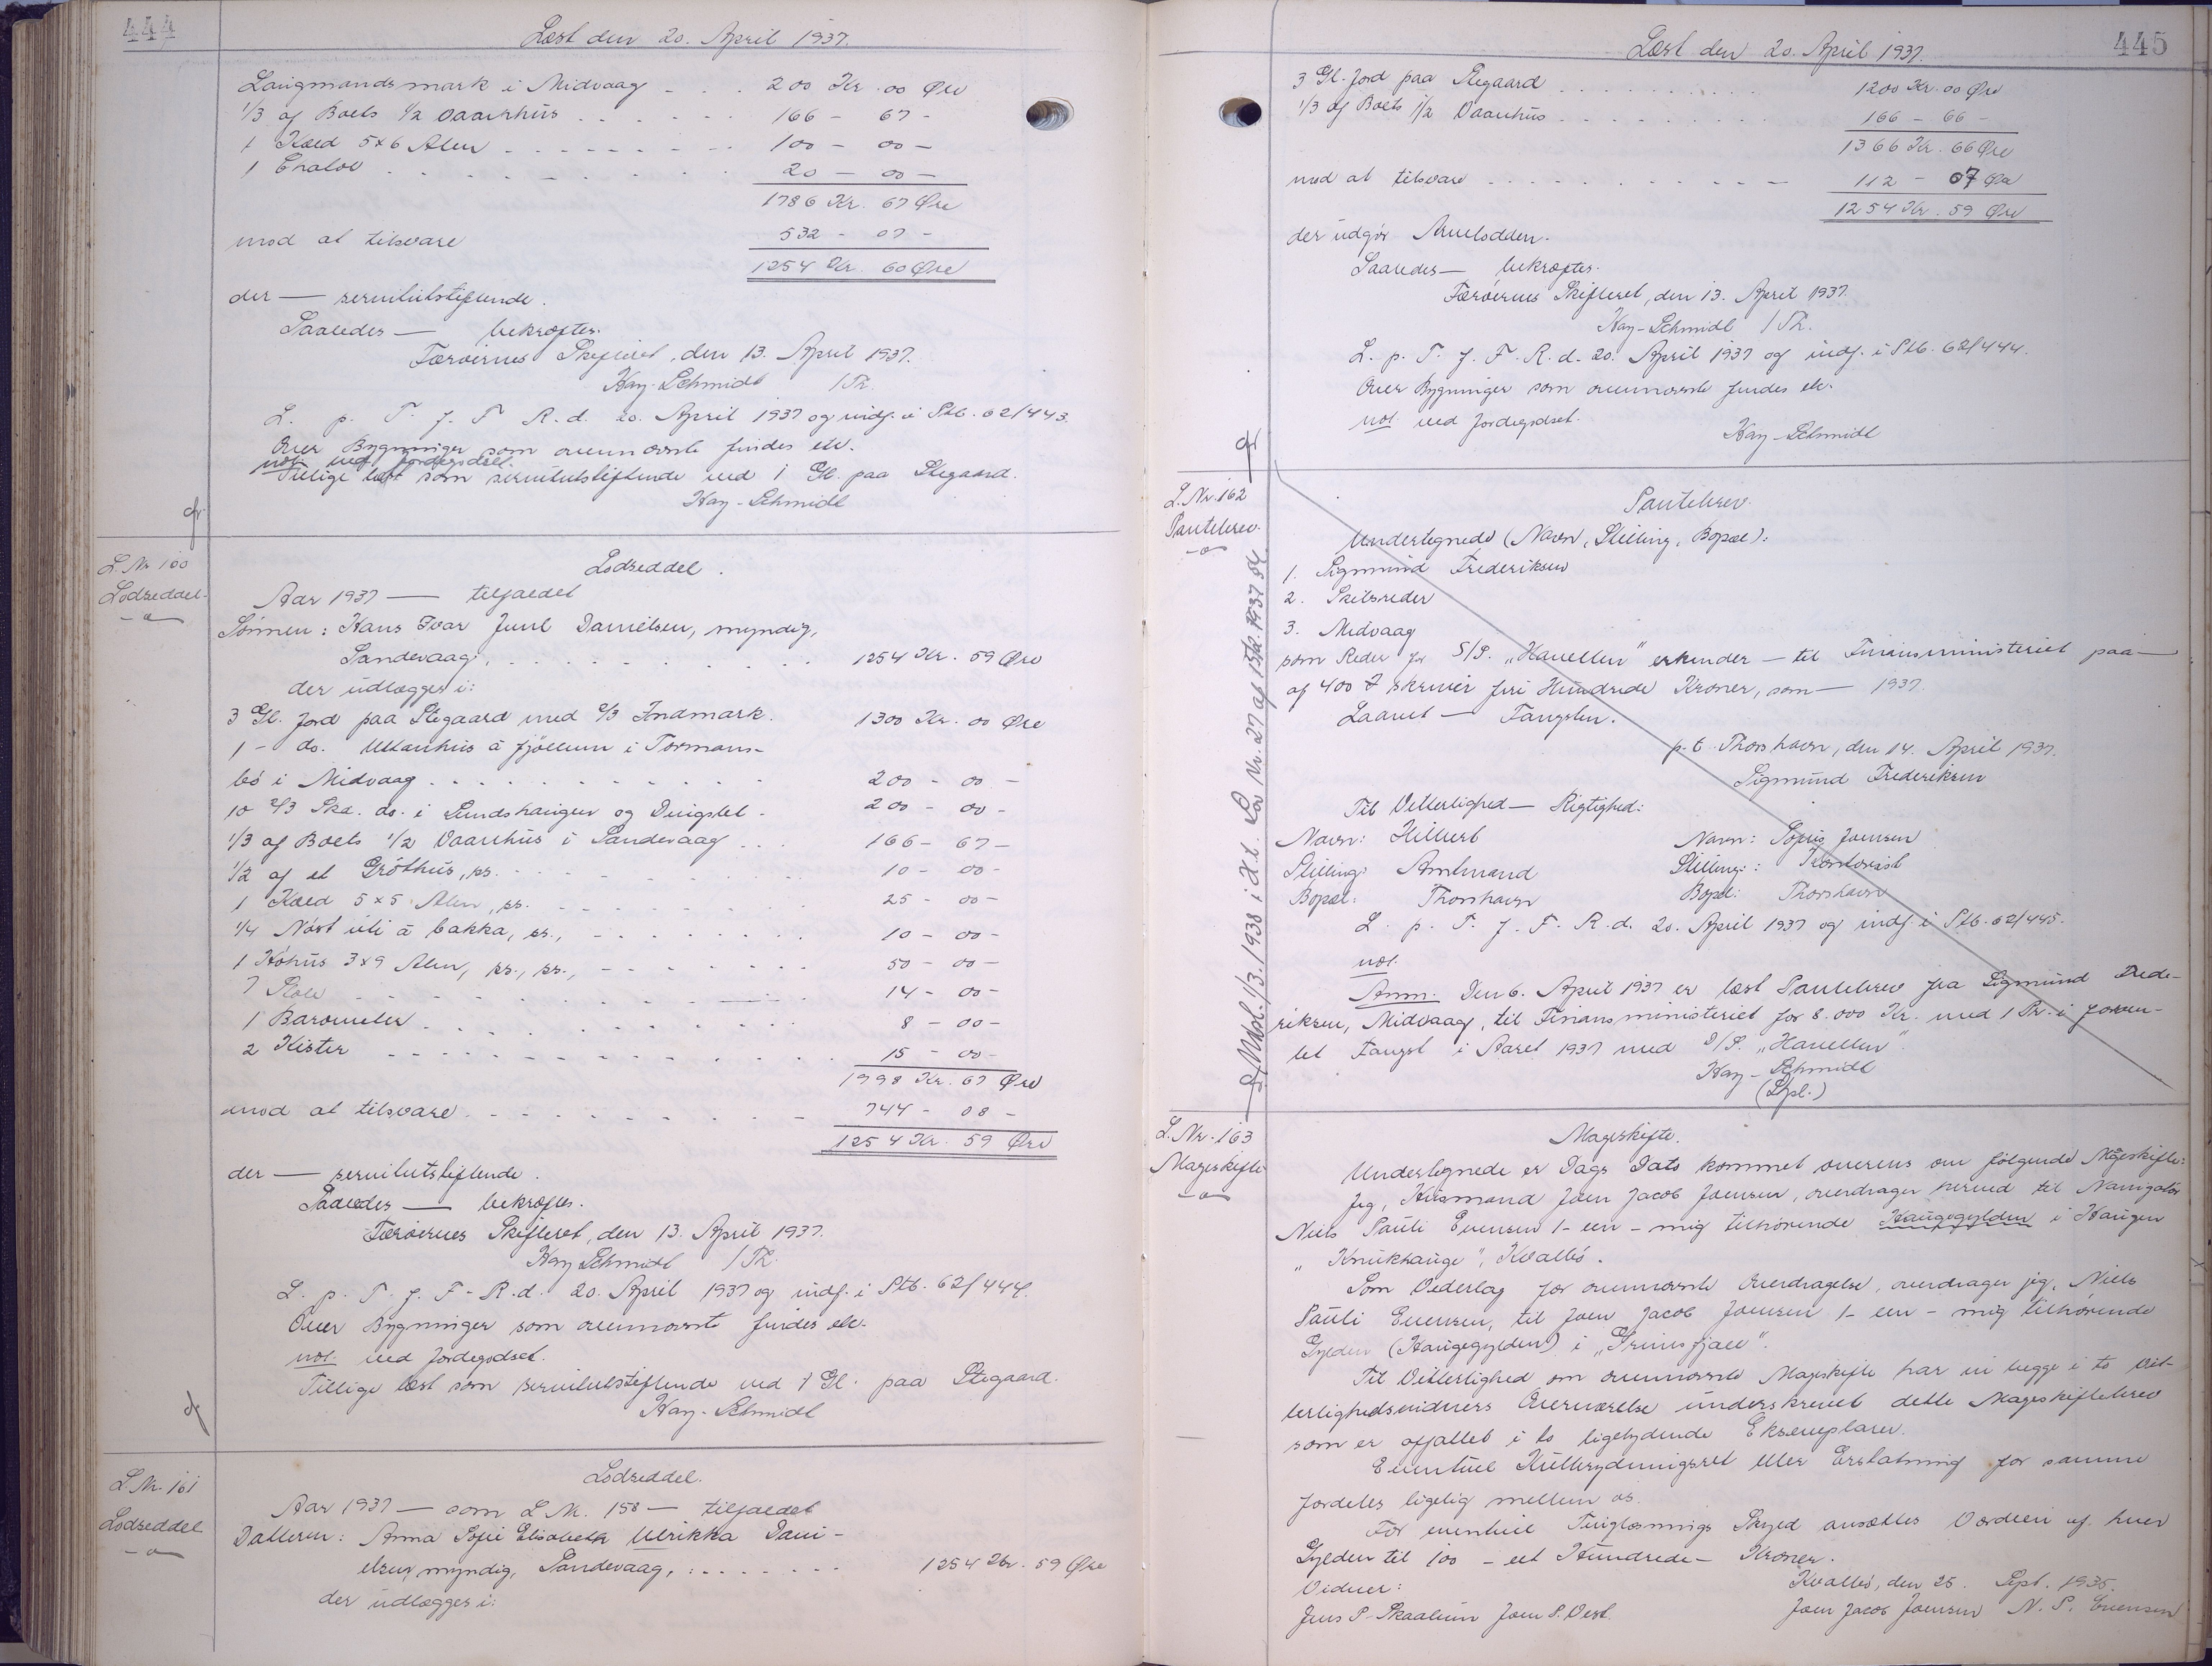 444
Læst den 20. April 1937.
Laigmandsmark i Midvaag - . . 200 Kr. 00 Øre
1/3 af Boets 1/2 Vaanhús . . . . . . 166 - 67 -
1 Kæd 5x6 Alen . . . . . . . . 100 - 00 -
1 Enalov . . . . . . . . . 20 - 00 -
1786 Kr. 67 Øre
mod at tilsvare 532 - 07 -
1254 Kr. 60 Øre
der — servitutstiftende.
Saaledes — bekræftes.
Færøernes Skifteret, den 13. April 1937.
Kay-Schmidt /Th.
L. p. T. f. F. R. d. 20. April 1937 og indf. i Stb. 62/443.
Over Bygninger som ovennævnte findes ek.
not. ved Jordegodset.
Tillige læst som servitutstiftende ved 1 Gl. paa Stegaard.
Kay-Schmidt
L Nr 160
Lodseddel.
Lodseddel.
Aar 1937 — tilfaldet
Sønnen: Hans Ivar Juul Danielsen, myndig,
Sandevaag, . . . . . . . . . . 1254 Kr. 59 Øre
der udlægges i:
3 Gl. Jord paa Stegaard med 2/3 Indmark. 1300 Kr. 00 Øre
1 - do. Uttanhús á fjøllum i Tormans-
bó i Midvaag . . . . . . . . . . 200 - 00 -
10 2/3 Ska. do. i Sundshaugen og Dingslet - 200 - 00 -
1/3 af Boets 1/2 Vaanhús i Sandevaag . . . 166 - 67 -
1/2 af et Gróthús, ps. . . . . . . . 10 - 00 -
1 Kæd 5x5 Alen, ps. . . . . . . . . 25 - 00 -
1/4 Nóst úti á bakka, ps., . . . . . . 10 - 00 -
1 Kóhús 3x9 Alen, ps., ps., . . . . . . 50 - 00 -
7 Stole . . . . . . . . . . . 14 - 00 -
1 Barometer . . . . . . . . . . 8 - 00 -
2 Kister . . . . . . . . . . . 15 - 00 -
1998 Kr. 67 Øre
mod at tilsvare . . . . . . . . . . 744 - 08 -
1254 Kr. 59 Øre
der — servitutstiftende.
Saaledes — bekræftes.
Færøernes Skifteret, den 13. April 1937.
Kay Schmidt /Th.
L. p. T. f. F. R. d. 20. April 1937 og indf. i Stb. 62/444.
Over Bygninger som ovennævnte findes ek.
not. ved Jordegodset.
Tillige læst som servitutstiftende ved 1 Gl. paa Stegaard.
Kay-Schmidt
L Nr. 161
Lodseddel
Lodseddel.
Aar 1937 — som L. Nr. 158 — tilfaldet
Datteren: Anna Sofie Elisabeth Ulrikka Dani-
elsen, myndig, Sandevaag, : . . . . . . . 1254 Kr. 59 Øre
der udlægges i:
445
Læst den 20. April 1937.
3 Gl. Jord paa Stegaard . . . . . . . . . . 1200 Kr. 00 Øre
1/3 af Boets 1/2 Vaanhús . . . . . . . . . 166 - 66 -
1366 Kr. 66 Øre
mod at tilsvare . . . . . . . . . . . 112 - 07 Øre
1254 Kr. 59 Øre
der udgør Arvelodden.
Saaledes — bekræftes.
Færøernes Skifteret, den 13. April 1937.
Kay-Schmidt /Th.
L. p. T. f. F. R. d. 20. April 1937 og indf. i Stb. 62/444.
Over Bygninger som ovennævnte findes ek.
not. ved Jordegodset.
Kay-Schmidt
L. Nr. 162
Pantebrev.
Pantebrev.
Undertegnede (Navn, Stilling, Bopæl):
1. Sigmund Frederiksen
2. Skibsreder
3. Midvaag
som Reder for S/S. "Havellen" erkender — til Finansministeriet paa —
af 400 # skriver firi Hundrede Kroner, som — 1937.
Laanet — Fangsten.
p.t. Thorshavn, den 14. April 1937.
Sigmund Frederiksen
Til Vitterlighed — Rigtighed:
Navn: Hilbert Navn: Sofus Joensen
Stilling: Amtmand Stilling: Kontorist
Bopæl: Thorshavn Bopæl: Thorshavn
L. p. T. f. F. R. d. 20. April 1937 og indf. i Stb. 62/445.
not.
Anm. Den 6. April 1937 er læst Pantebrev fra Sigmund Frede-
riksen, Midvaag, til Finansministeriet for 8.000 Kr. med 1 Pr. i forven-
tet Fangst i Aaret 1937 med S/S. "Havellen".
Kay-Schmidt
(Stpl.)
Udsl. 1/3. 1938 i H. t. Lov Nr. 27 af 13/2. 1937
L. Nr. 163
Mageskifte
Mageskifte.
Undertegnede er Dags Dato kommet overens om følgende Mageskifte:
Jeg, Husmand Joen Jacob Joensen, overdrager herved til Navigatør
Niels Pauli Evensen 1 - een - mig tilhørende Haugegylden i Haugen
"Knúkshauge", Kvalbø.
Som Vederlag for ovennævnte Overdragelse, overdrager jeg, Niels
Pauli Evensen, til Joen Jacob Joensen 1 - een - mig tilhørende
Gylden (Haugegylden) i "Grimsfjall".
Til Vitterlighed om ovennævnte Mageskifte har vi begge i to Vit-
terlighedsvidners Overværelse underskrevet dette Mageskiftebrev
som er affattet i to ligelydende Eksemplarer.
Eventuel Kultrydningsret eller Erstatning for samme
fordeles ligelig mellem os.
For eventuel Tinglæsnings Skyld ansættes Værdien af hver
Gylden til 100 - eet Hundrede - Kroner.
Vidner: Kvalbø, den 25. Sept. 1935.
Jens P. Skaalum Joen P. Vest. Joen Jacob Joensen N. P. Evensen